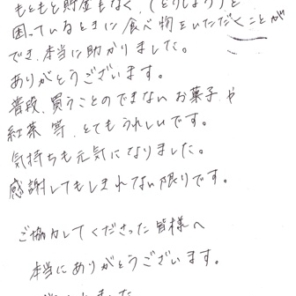 もともと貯金もなく、「どうしよう」と
困っているときに食べ物をいただくことが
でき、本当に助かりました。
ありがとうございます。
普段、買うことのできないお菓子や
紅茶等、とてもうれしいです。
気持ちも元気になりました。
感謝してもしきれない限りです。
ご協力してくださった皆様へ
本当にありがとうございます。
ました